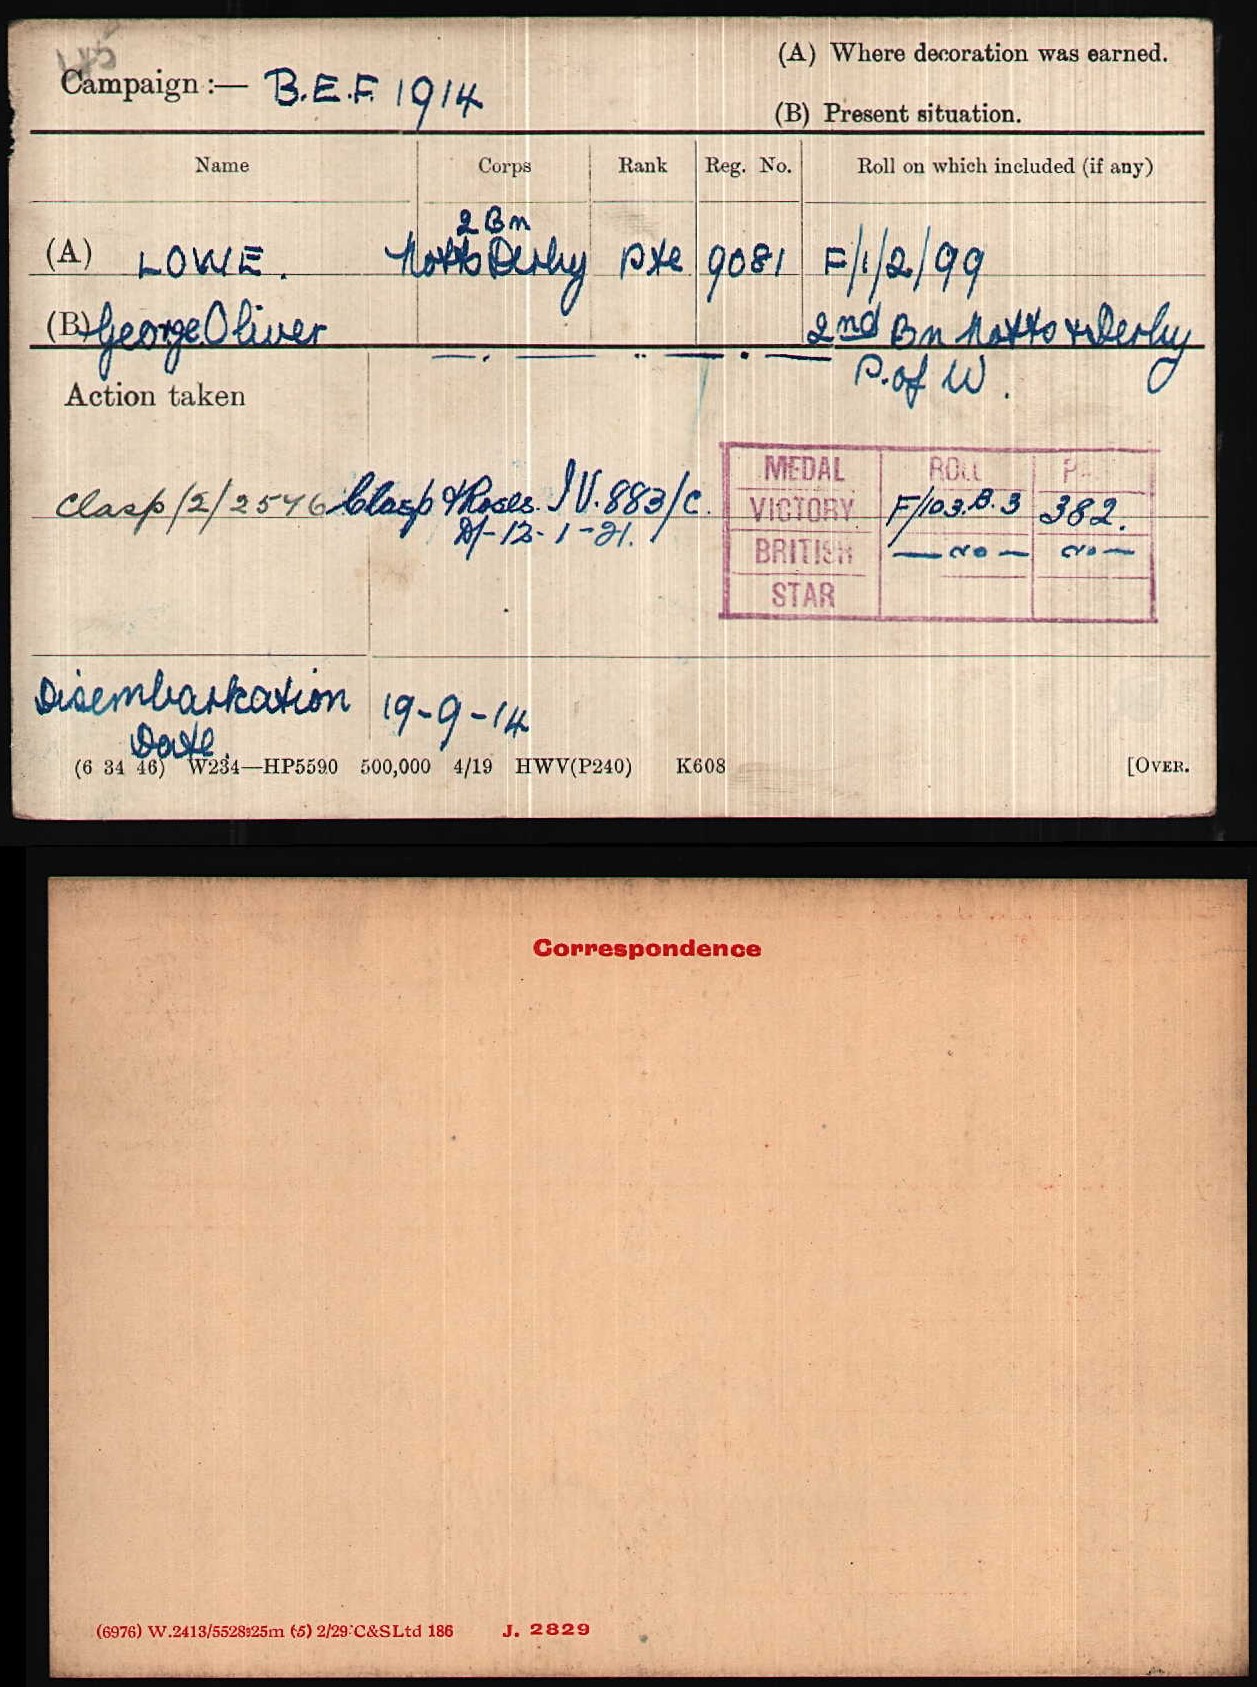 (A) Where decoration was earned.
Campaign :— B.E.F. 1914
(B) Present situation.
Name Corps Rank Reg. No. Roll on which included (if any)
2 Bn
(A) LOWE. Notts Derby Pte 9081 F/1/2/99
(B) George Oliver 2nd Bn Notts & Derby
P. of W.
Action taken
MEDAL ROLL
Clasp/2/2546 Clasp & Roses. IV.883/C. VICTORY F/103.B.3 382.
D/-12-1-21. BRITISH — do — do —
STAR
Disembarkation 19-9-14
Date.
(6 34 46) W234—HP5590 500,000 4/19 HWV(P240) K608 [OVER.
Correspondence
(6976) W.2413/5528 25m (5) 2/29 C&S Ltd 186 J. 2829